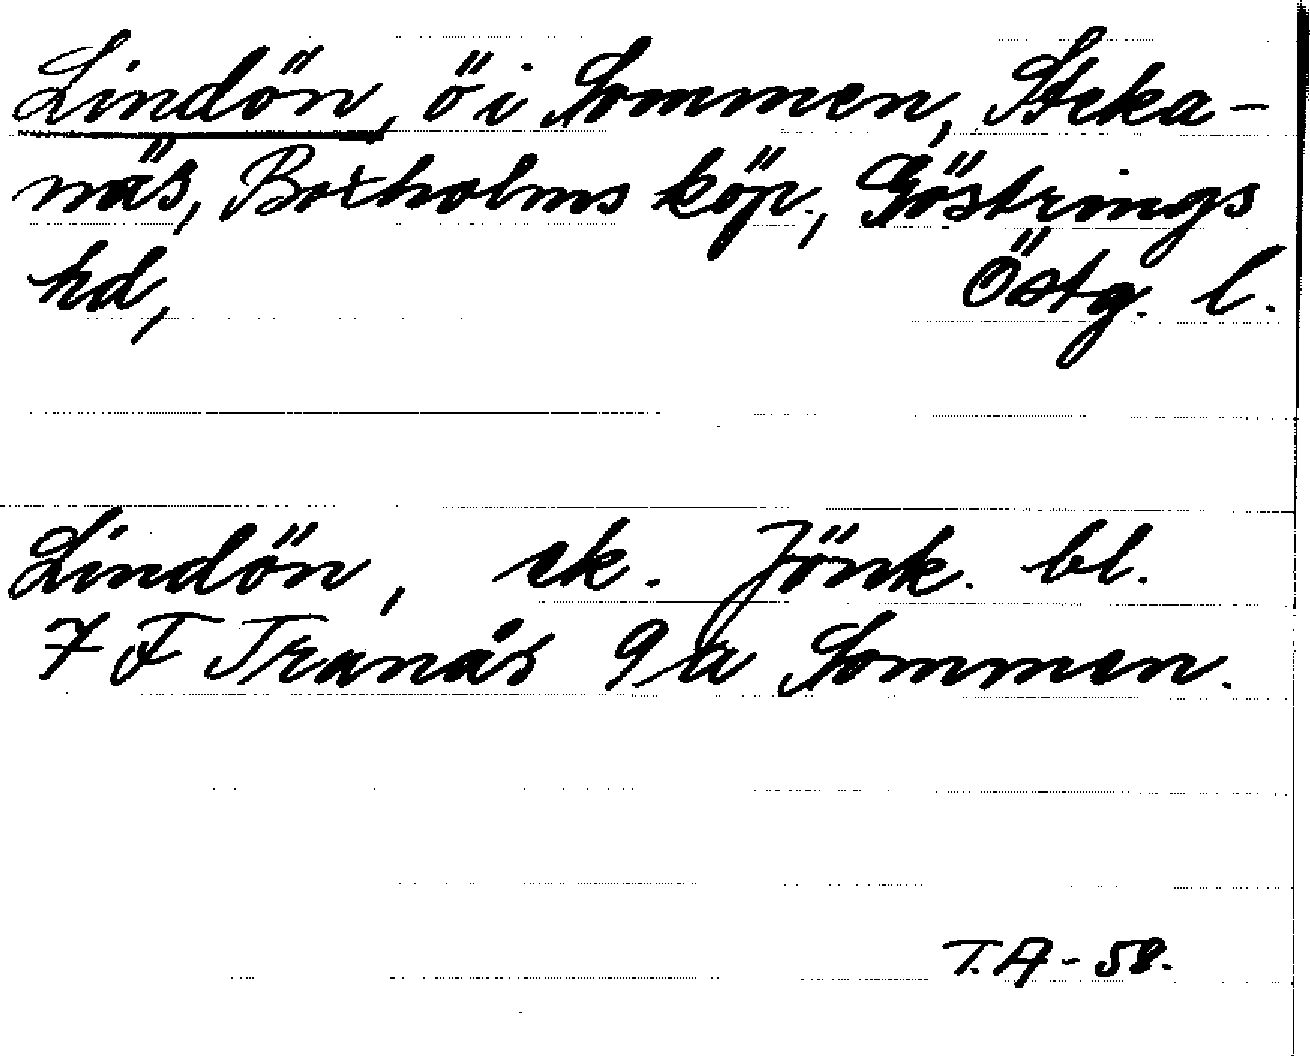 Lindön, ö i Sommen, Steka-
näs, Boxholms köp., Göstrings
hd, Östg. l.
Lindön, ek. Jönk. bl.
7 F Tranås 9 a Sommen.
T.A-58.